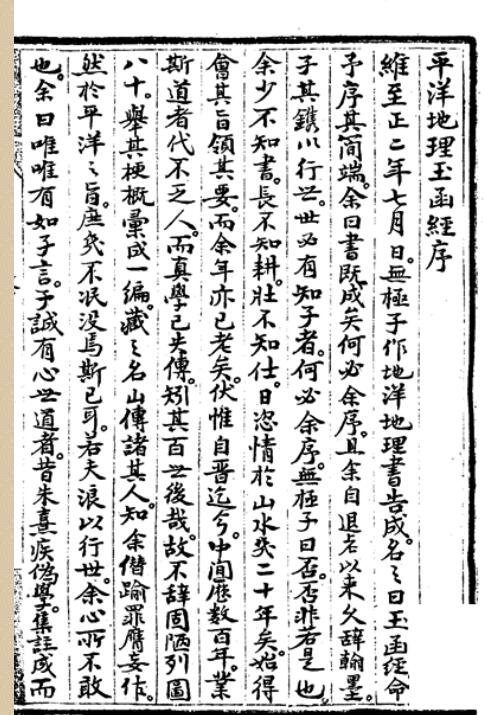 平洋地理玉函經序
維至正二年七月日。無極子作地洋地理書告成。名之曰玉函經命
予序其简端。余曰書既成矣何必余序。且余自退老以来久辞翰墨。
子其鐫以行世。世必有知子者。何必余序。無極子曰。否。否非若是也。
余少不知書。長不知耕。壯不知仕。日恣情於山水癸二十年矣。始得
會其旨領其要。而余年亦已老矣。伏惟自晋迄今。中间歷数百年業
斯道者代不乏人。而真學已失傳。矧其百世後哉。故不辞固陋列圖
八十。舉其梗概彙成一編。藏之名山傳諸其人。知余僭踰罪膺妄作。
然於平洋之旨。庶幾不泯没焉斯已可。若夫浪以行世。余心所不敢
也。余曰唯唯有如子言。子誠有心世道者。昔朱熹疾偽學。集註成而